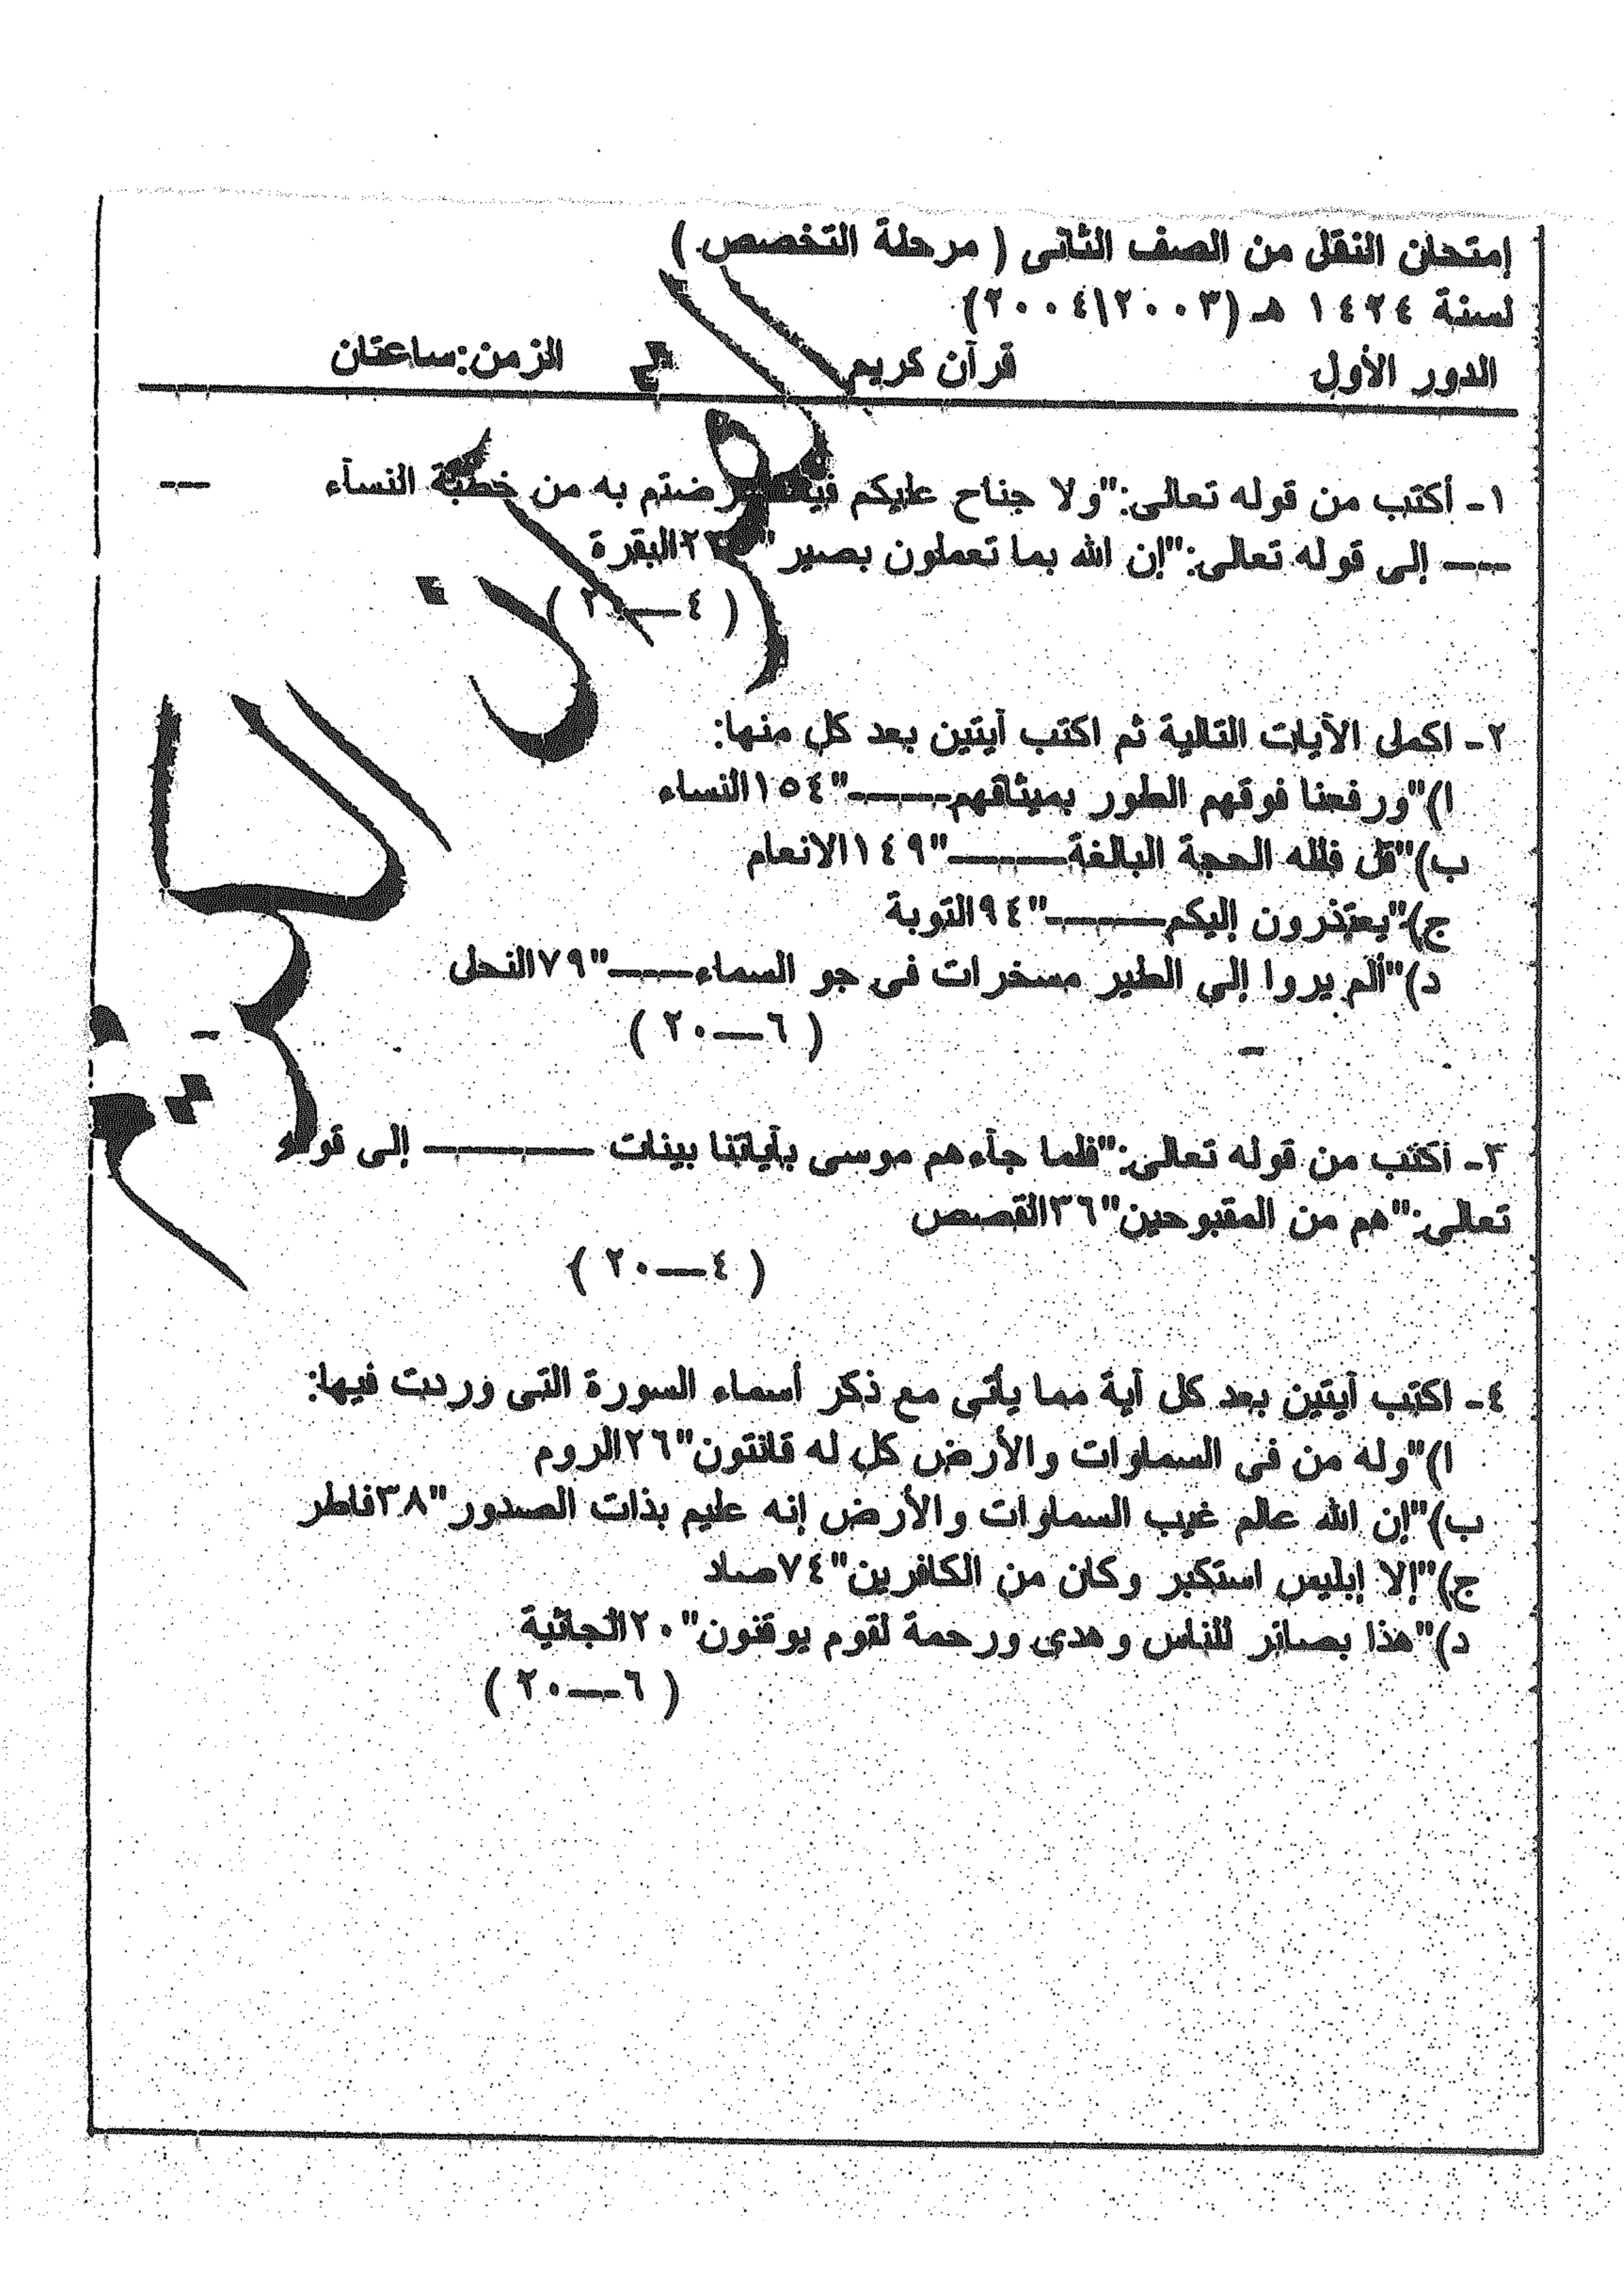 إمتحان النقل من الصف الثانى ( مرحلة التخصص )
لسنة ١٤٢٤ هـ (٢٠٠٣\٢٠٠٤)
الدور الأول قرآن كريم الزمن:ساعتان
١- أكتب من قوله تعالى:"ولا جناح عليكم به من خطبة النسآء ---
---- إلى قوله تعالى:"إن الله بما تعملون بصير" البقرة
٢- اكملى الآيات التالية ثم اكتب آيتين بعد كل منها:
ا)"ورفعنا فوقهم الطور بميثاقهم-------"١٥٤النساء
ب)"قل فلله الحجة البالغة-------"١٤٩الانعام
ج)"يعتذرون إليكم-------"٩٤التوبة
د)"ألم يروا إلى الطير مسخرات فى جو السماء-----"٧٩النحل
( ٦---٢٠ )
٣- اكتب من قوله تعالى:"فلما جآءهم موسى بآياتنا بينات --------- إلى قوله
تعالى:"هم من المقبوحين"٣٦القصص
( ٤---٢٠ )
٤- اكتب آيتين بعد كل آية مما يأتى مع ذكر أسماء السورة التى وردت فيها:
ا)"وله من فى السماوات والأرض كل له قانتون"٢٦الروم
ب)"إن الله عالم غيب السماوات والأرض إنه عليم بذات الصدور"٣٨فاطر
ج)"إلا إبليس استكبر وكان من الكافرين"٧٤صاد
د)"هذا بصائر للناس وهدى ورحمة لقوم يوقنون"٢٠الجاثية
( ٦---٢٠ )